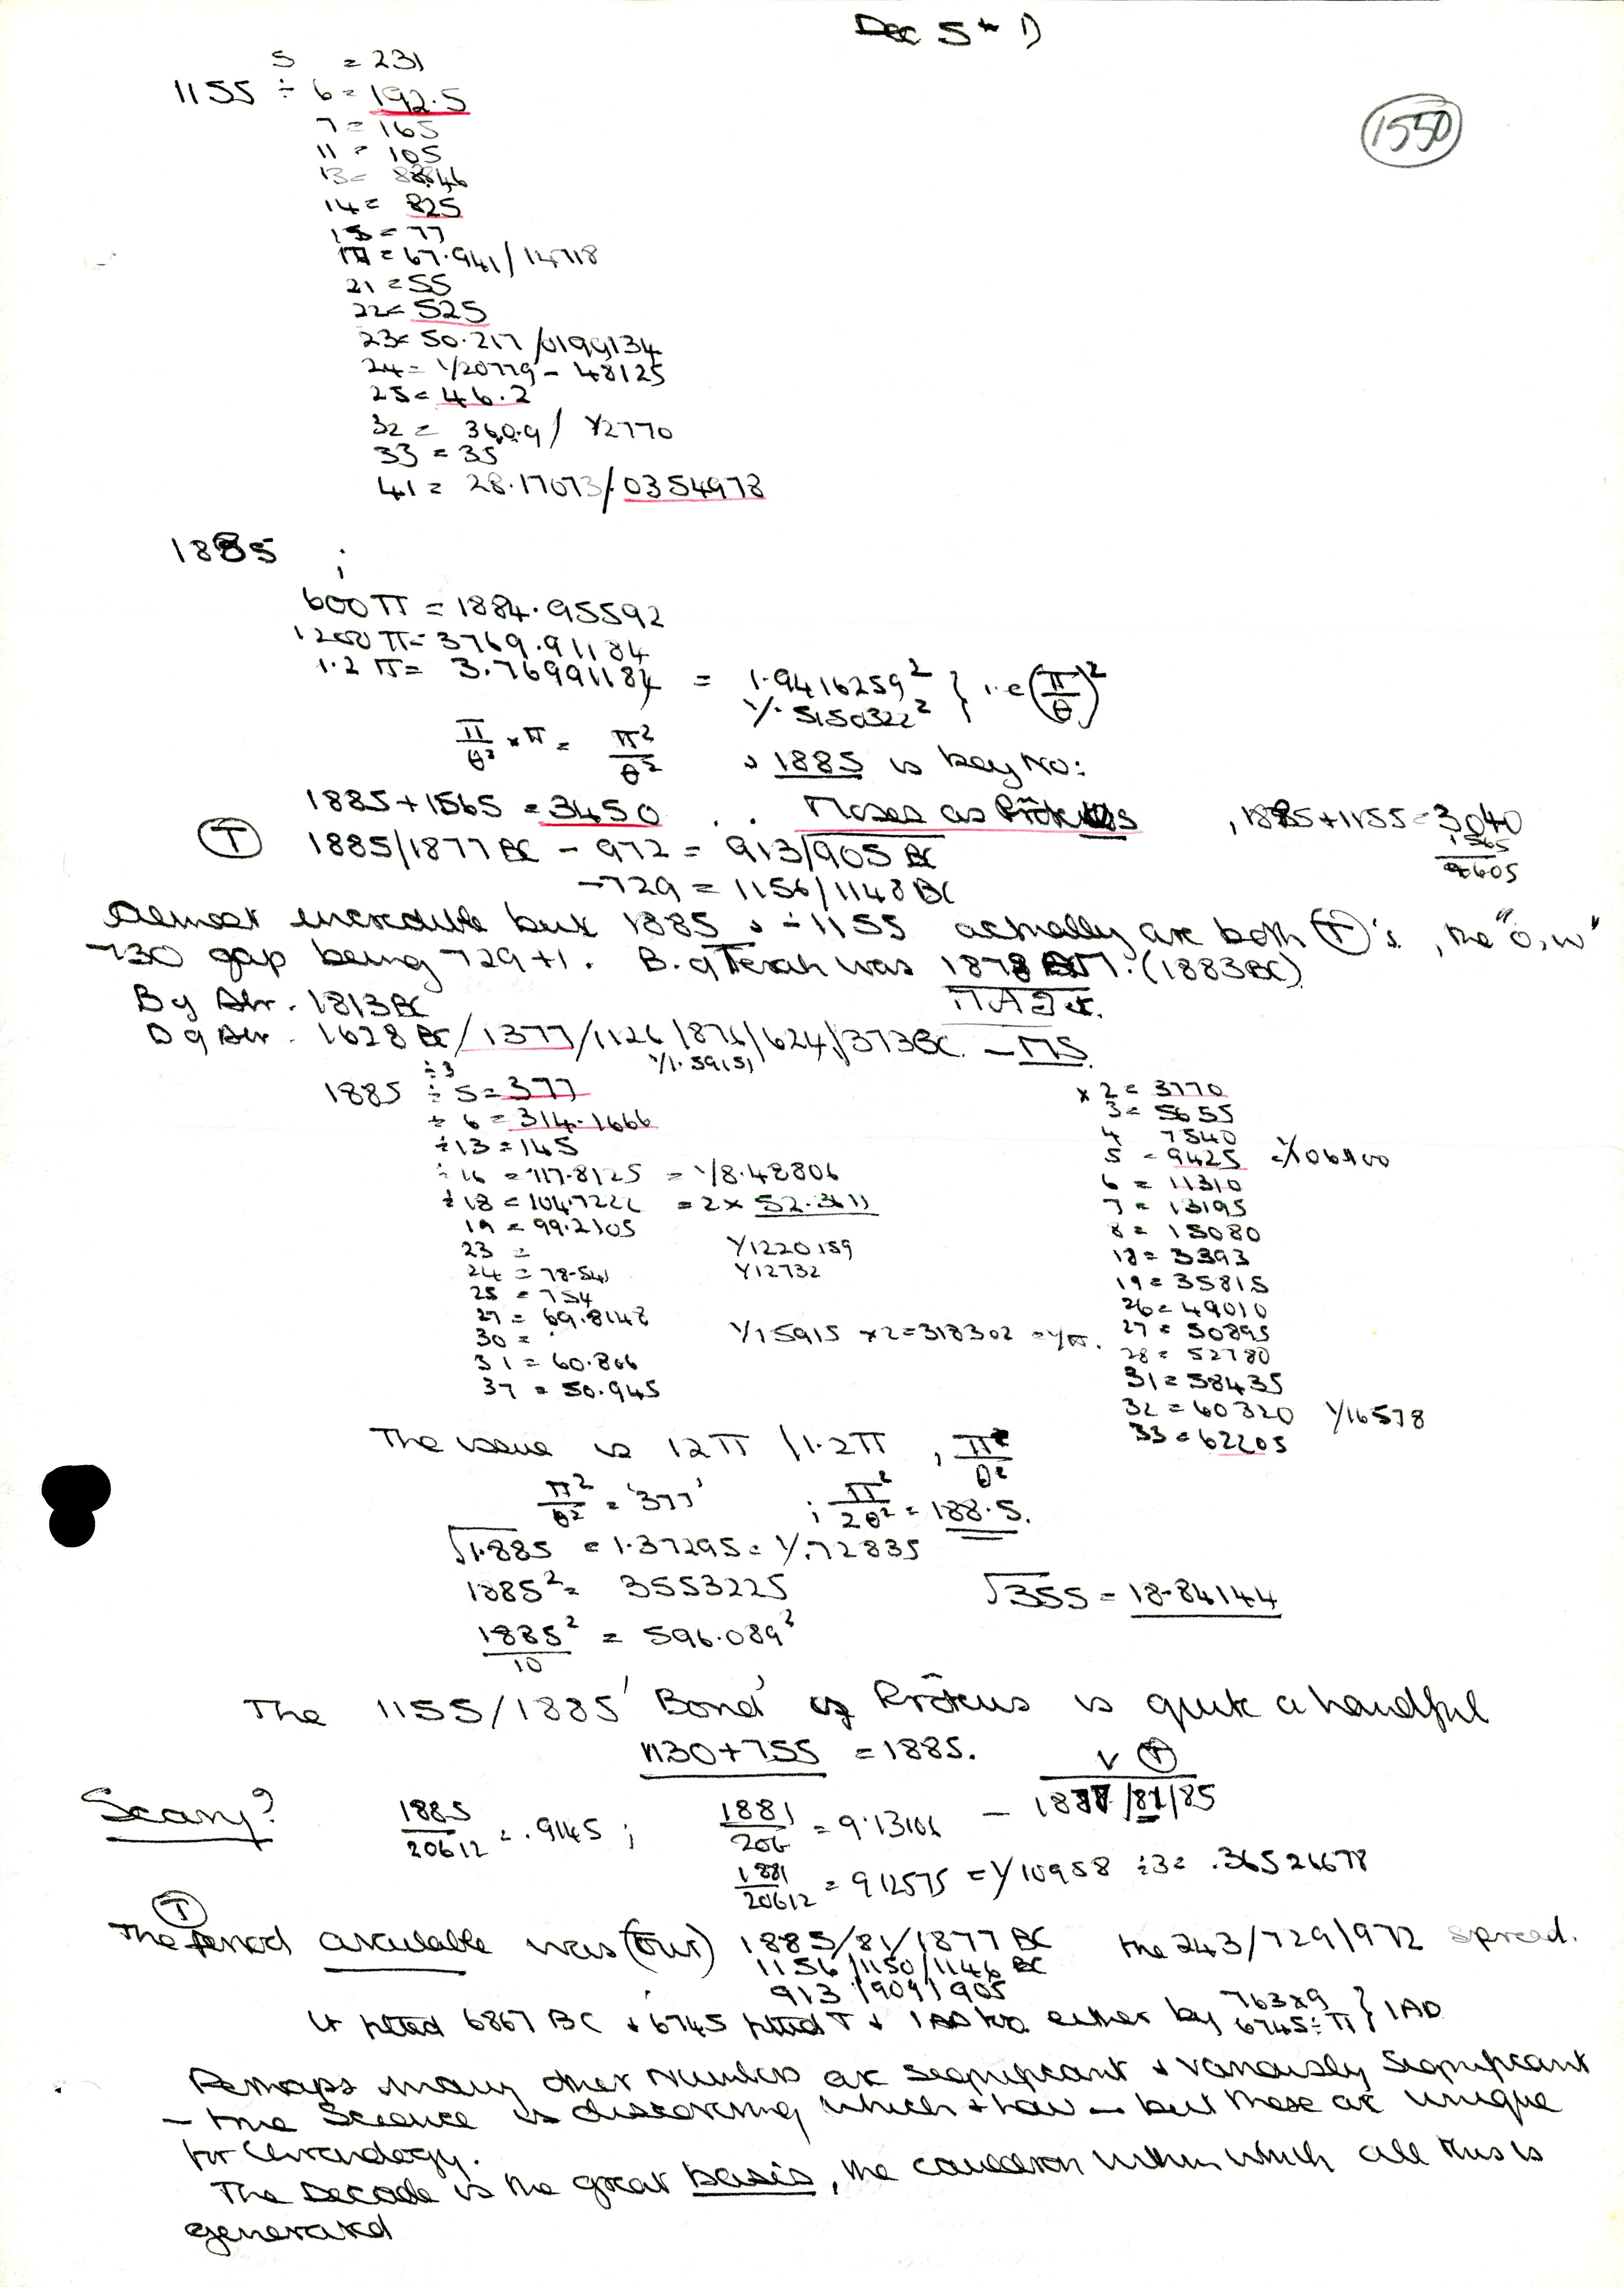 Dec 5th 1)
1550
5 = 231
1155 ÷ 6 = 192.5
7 = 165
11 = 105
13 = 88846
14 = 825
15 = 77
17 = 67.941/14718
21 = 55
22 = 525
23 = 50.217/0199134
24 = 1/20779 - 48125
25 = 46.2
32 = 360.9/ 1/2770
33 = 35
41 = 28.17073/.0354978
1885 ;
600π = 1884.95592
1200π = 3769.91184
1.2π = 3.76991184 = 1.9416259² } i.e (π/θ)²
1/.5150322²
π/θ² × π = π²/θ² , 1885 is key No:
1885+1565 = 3450 . . Moses as Prōteus , 1885+1155 = 3040
1565
4605
(T) 1885/1877 BC - 972 = 913/905 BC
-729 = 1156/1148 BC
Almost incredible but 1885 & -1155 actually are both (T)'s, the "o, w"
730 gap being 729+1. B. of Terah was 1878 (1883BC)
B of Abr. 1813BC
D of Abr. 1628 BC/1377/1126/876/624/373BC. - MS.
1/1.59151
÷3
1885 ÷ 5 = 377
÷ 6 = 314.1666
÷ 13 = 145
÷ 16 = 117.8125 = 1/8.48806
÷ 18 = 104.7222 = 2 × 52.3611
19 = 99.2105
23 = 1/1220159
24 = 78.541 1/12732
25 = 754
27 = 69.8148
30 = 1/15915 ×2 = 318302 = 1/π.
31 = 60.806
37 = 50.945
× 2 = 3770
3 = 5655
4 7540
5 = 9425 = 1/106100
6 = 11310
7 = 13195
8 = 15080
18 = 3393
19 = 35815
26 = 49010
27 = 50895
28 = 52780
31 = 58435
32 = 60320 1/16578
33 = 62205
The issue is 12π / 1.2π , π²/θ²
π²/θ² = '377' ; π²/2θ² = 188.5.
√1.885 = 1.37295 = 1/.72835
1885² = 3553225 √355 = 18.84144
1885²/10 = 596.089²
The 1155/1885 'Bond' of Prōteus is quite a handful
1130+755 = 1885.
V (T)
Scary? 1885/20612 = .9145 ; 1881/206 = 9.13106 - 1877/81/85
1881/20612 = 912575 = 1/10958 ÷3 = .36526678
(T)
The period available was (four) 1885/81/1877 BC the 243/729/972 spread.
1156/1150/1146 BC
913/909/905
It fitted 6867 BC & 6745 fitted T & 1AD too either by 763x9 } 1AD
6745÷π
Perhaps many other numbers are significant & variously significant
- true Science is discerning which & how - but these are unique
for Chronology.
The Decade is the great basis, the cauldron within which all this is
generated